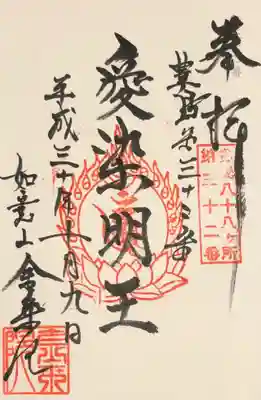 奉拝
八十八ヶ所
三十二番
豊島第三十二番
愛染明王
平成三十年十月九日
如意山 金乗院